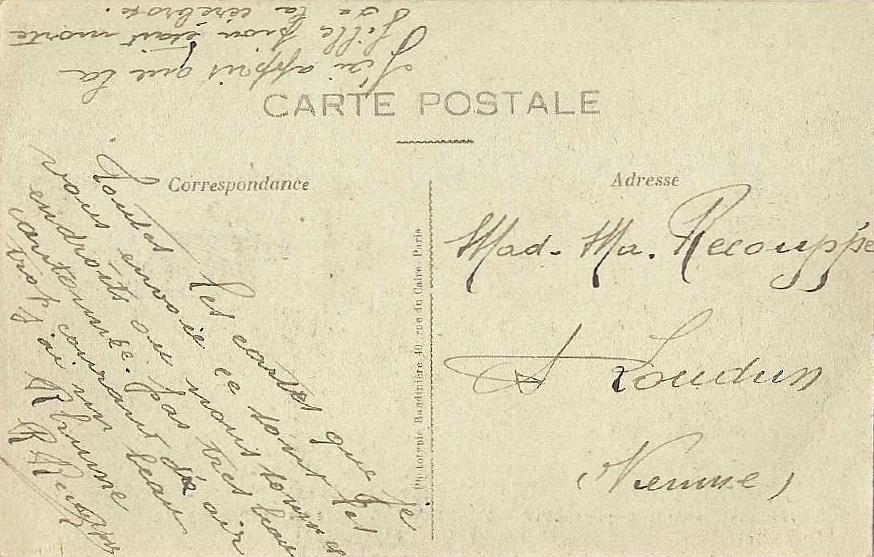 J'ai appris que la
fille Piron était morte
de la cérébros.
CARTE POSTALE
Correspondance
Toutes les cartes que je
vous envoie ce sont les
endroits où nous sommes
cantonnés. pas très beau
trop courant d'air
j'ai un beau
Rhume
R
Adresse
Mad. Ma. Recouppé
A Loudun
(Vienne)
Phototypie Baudinière 40, rue du Caire Paris